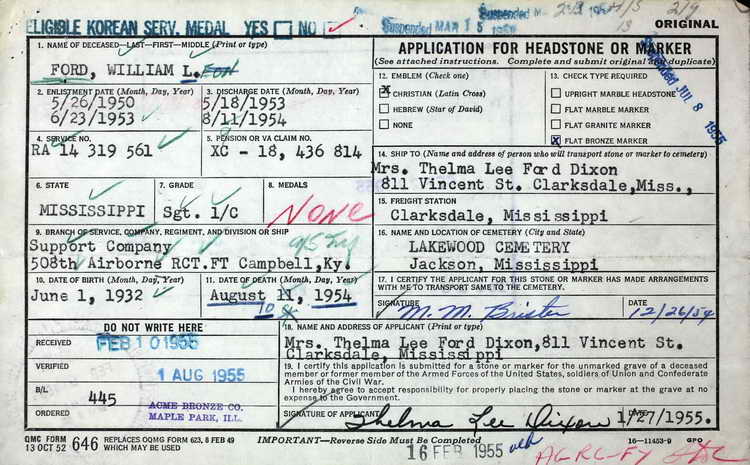 ELIGIBLE KOREAN SERV. MEDAL YES ☐ NO ☐
Suspended MAR 15 1955
Suspended
ORIGINAL
1. NAME OF DECEASED—LAST—FIRST—MIDDLE (Print or type)
FORD, WILLIAM L.
2. ENLISTMENT DATE (Month, Day, Year)
5/26/1950
6/23/1953
3. DISCHARGE DATE (Month, Day, Year)
5/18/1953
8/11/1954
4. SERVICE NO.
RA 14 319 561
5. PENSION OR VA CLAIM NO.
XC - 18, 436 814
6. STATE
MISSISSIPPI
7. GRADE
Sgt. 1/C
8. MEDALS
NONE
9. BRANCH OF SERVICE, COMPANY, REGIMENT, AND DIVISION OR SHIP
Support Company
508th Airborne RCT.FT Campbell,Ky.
10. DATE OF BIRTH (Month, Day, Year)
June 1, 1932
11. DATE OF DEATH (Month, Day, Year)
August 11, 1954
10
APPLICATION FOR HEADSTONE OR MARKER
(See attached instructions. Complete and submit original and duplicate)
Suspended JUL 8 1955
12. EMBLEM (Check one)
☒ CHRISTIAN (Latin Cross)
☐ HEBREW (Star of David)
☐ NONE
13. CHECK TYPE REQUIRED
☐ UPRIGHT MARBLE HEADSTONE
☐ FLAT MARBLE MARKER
☐ FLAT GRANITE MARKER
☒ FLAT BRONZE MARKER
14. SHIP TO (Name and address of person who will transport stone or marker to cemetery)
Mrs. Thelma Lee Ford Dixon
811 Vincent St. Clarksdale,Miss.,
15. FREIGHT STATION
Clarksdale, Mississippi
16. NAME AND LOCATION OF CEMETERY (City and State)
LAKEWOOD CEMETERY
Jackson, Mississippi
17. I CERTIFY THE APPLICANT FOR THIS STONE OR MARKER HAS MADE ARRANGEMENTS
WITH ME TO TRANSPORT SAME TO THE CEMETERY.
SIGNATURE M. M. Brister
DATE 12/26/54
DO NOT WRITE HERE
RECEIVED FEB 10 1955
VERIFIED 1 AUG 1955
B/L 445
ORDERED ACME BRONZE CO.
MAPLE PARK, ILL.
18. NAME AND ADDRESS OF APPLICANT (Print or type)
Mrs. Thelma Lee Ford Dixon,811 Vincent St.
Clarksdale, Mississippi
19. I certify this application is submitted for a stone or marker for the unmarked grave of a deceased
member or former member of the Armed Forces of the United States, soldiers of Union and Confederate
Armies of the Civil War.
I hereby agree to accept responsibility for properly placing the stone or marker at the grave at no
expense to the Government.
SIGNATURE OF APPLICANT Thelma Lee Dixon 1/27/1955.
QMC FORM
13 OCT 52 646 REPLACES OQMG FORM 623, 8 FEB 49
WHICH MAY BE USED
IMPORTANT—Reverse Side Must be Completed
16—11453-9 GPO
16 FEB 1955
AGRC-FY